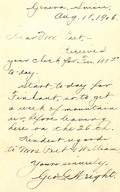 Geneva, Suisse,
Aug. 18, 1906.
Dear Mr. Peet,—
Received
your check for Fcs.
to-day.
Start to-day for
Finhaut, as to get
a week of mountain
air, before leaving
here on the 26th.
Kindest regards
to Mrs Peet & William
Yours sincerely,
Geo. E. Wright.